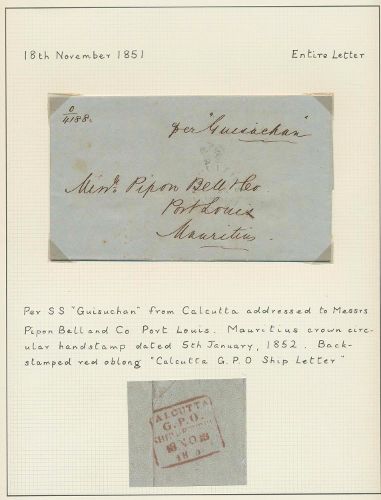 18th November 1851 Entire Letter
0
4188.
per "Guisachan"
Messrs Pipon Bell & Co
Port Louis
Mauritius.
Per SS "Guisuchan" from Calcutta addressed to Messrs
Pipon Bell and Co Port Louis. Mauritius crown circ-
ular handstamp dated 5th January, 1852. Back-
stamped red oblong "Calcutta G.P.O Ship Letter"
CALCUTTA
G.P.O.
SHIP LETTER
18 NO 18